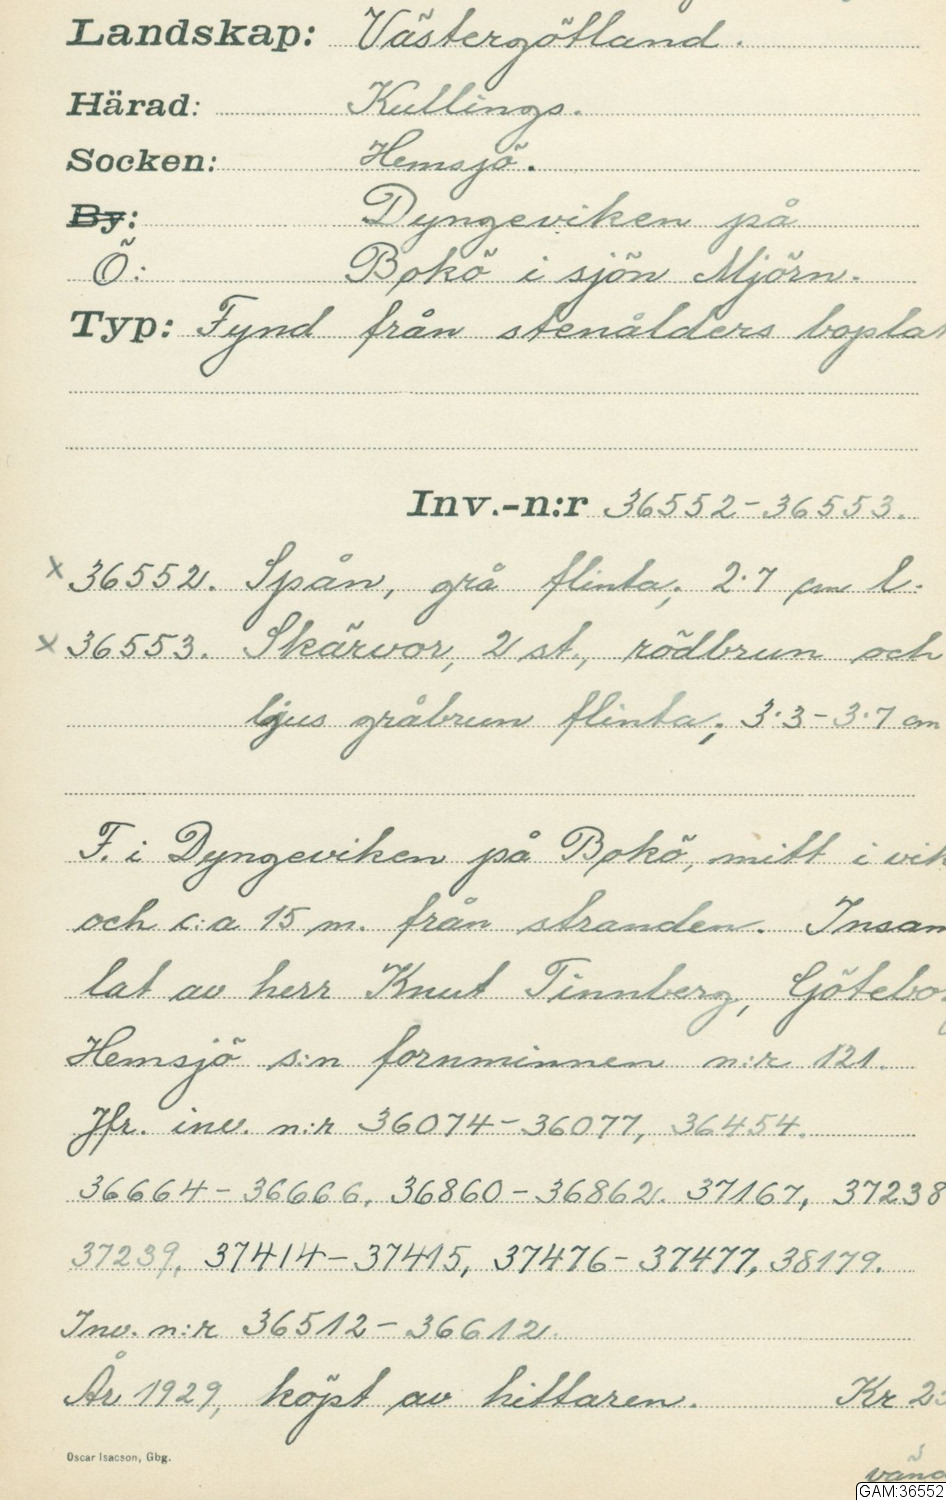 Landskap: Västergötland.
Härad: Kullings.
Socken: Hemsjö.
By: Dyngeviken på
Ö: Bokö i sjön Mjörn.
Typ: Fynd från stenålders boplat
Inv.-n:r 36552-36553.
x 36552. Spån, grå flinta; 2.7 cm l.
x 36553. Skärvor, 2 st., rödbrun och
ljus gråbrun flinta; 3.3-3.7 cm
F. i Dyngeviken på Bokö, mitt i vik
och c:a 15 m. från stranden. Insam
lat av herr Knut Tinnberg, Götebo
Hemsjö s:n fornminnen n:r 121.
Jfr. inv. n:r 36074-36077, 36454.
36664-36666, 36860-36862. 37167, 37238
37239, 37414-37415, 37476-37477, 38179.
Inv. n:r 36512-36612.
År 1929, köpt av hittaren. Kr 2
Oscar Isacson, Gbg.
vänd
GAM:36552